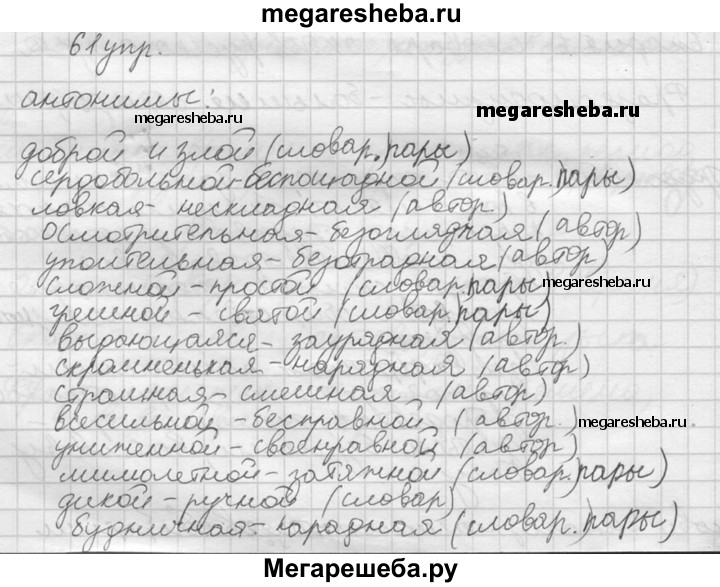 megaresheba.ru
61 упр.
антонимы:
megaresheba.ru
megaresheba.ru
доброй и злой (словар. пары)
сердобольной - беспощадной (словар. пары)
ловкая - нескладная (автор)
осмотрительная - безоглядная (автор)
упоительная - безотрадная (автор)
сложной - простой (словар. пары) megaresheba.ru
грешной - святой (словар. пары)
выдающаяся - заурядная (автор.)
скромненькая - нарядная (автор)
страшная - смешная (автор)
всесильной - бесправной (автор.) megaresheba.ru
униженной - своенравной (автор)
мимолетной - затяжной (словар. пары)
дикой - ручной (словар)
будничная - парадная (словар. пары)
Мегарешеба.ру